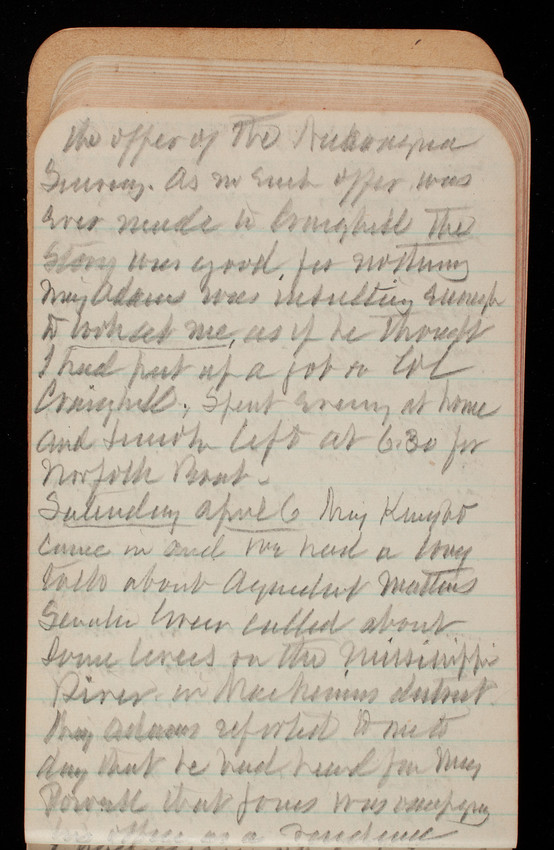 the offer of The Nicaragua
Survey. As no such offer was
ever made to Craighill The
Story was good for nothing
Maj Adams was insulting enough
to look at me, as if he thought
I had put up a job on Col
Craighill. Spent evening at home
and Lincoln left at 6.30 for
Norfolk Boat.
Saturday april 6 Maj Knight
came in and we had a long
talk about Aqueduct matters
Senator called about
some levees on the Mississippi
River in district.
Maj Adams reported to me to
day that he had heard from Maj
Powell that Jones was occupying
his office as a residence